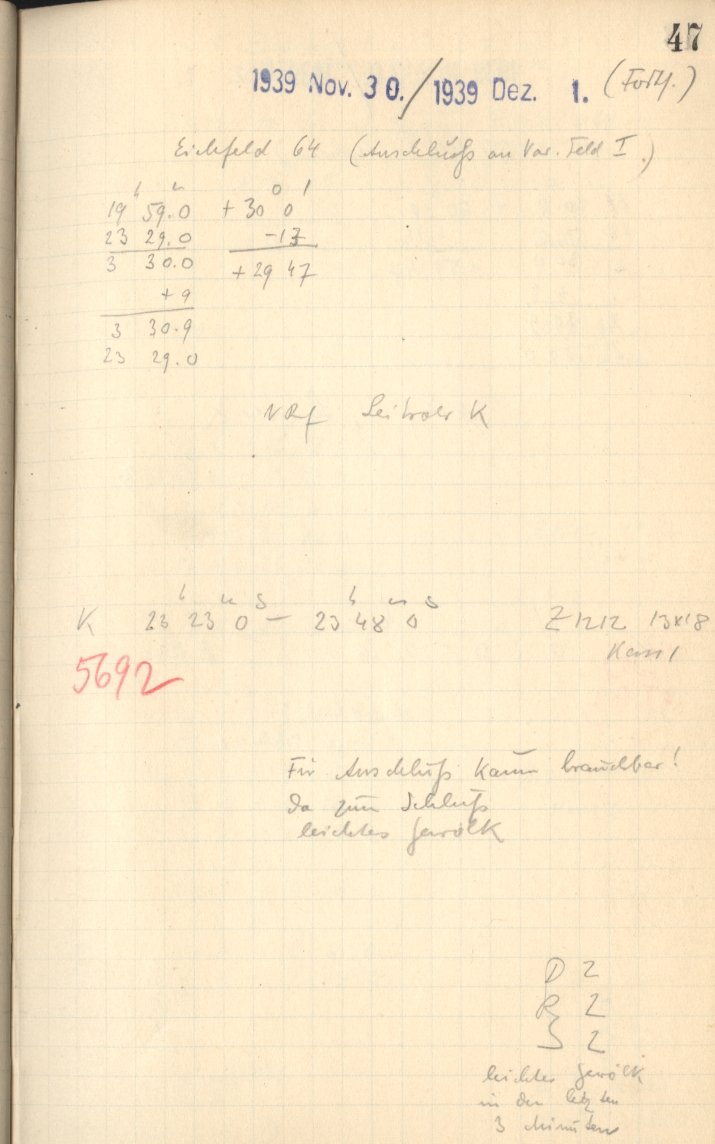 47
1939 Nov. 30. / 1939 Dez. 1. (Forts.)
Eichfeld 64 (Anschluß an Var. Feld I.)
h m o /
19 59.0 + 30 0
23 29.0 -13
3 30.0 + 29 47
+9
3 30.9
23 29.0
Leitrohr K
h m s h m s
K 23 23 0 – 23 48 0 Z 1212 13x18
Kass 1
5692
Für Anschluß kaum brauchbar!
da zum Schluß
leichtes Gewölk
D 2
R 2
S 2
leichtes Gewölk
in den letzten
3 Minuten